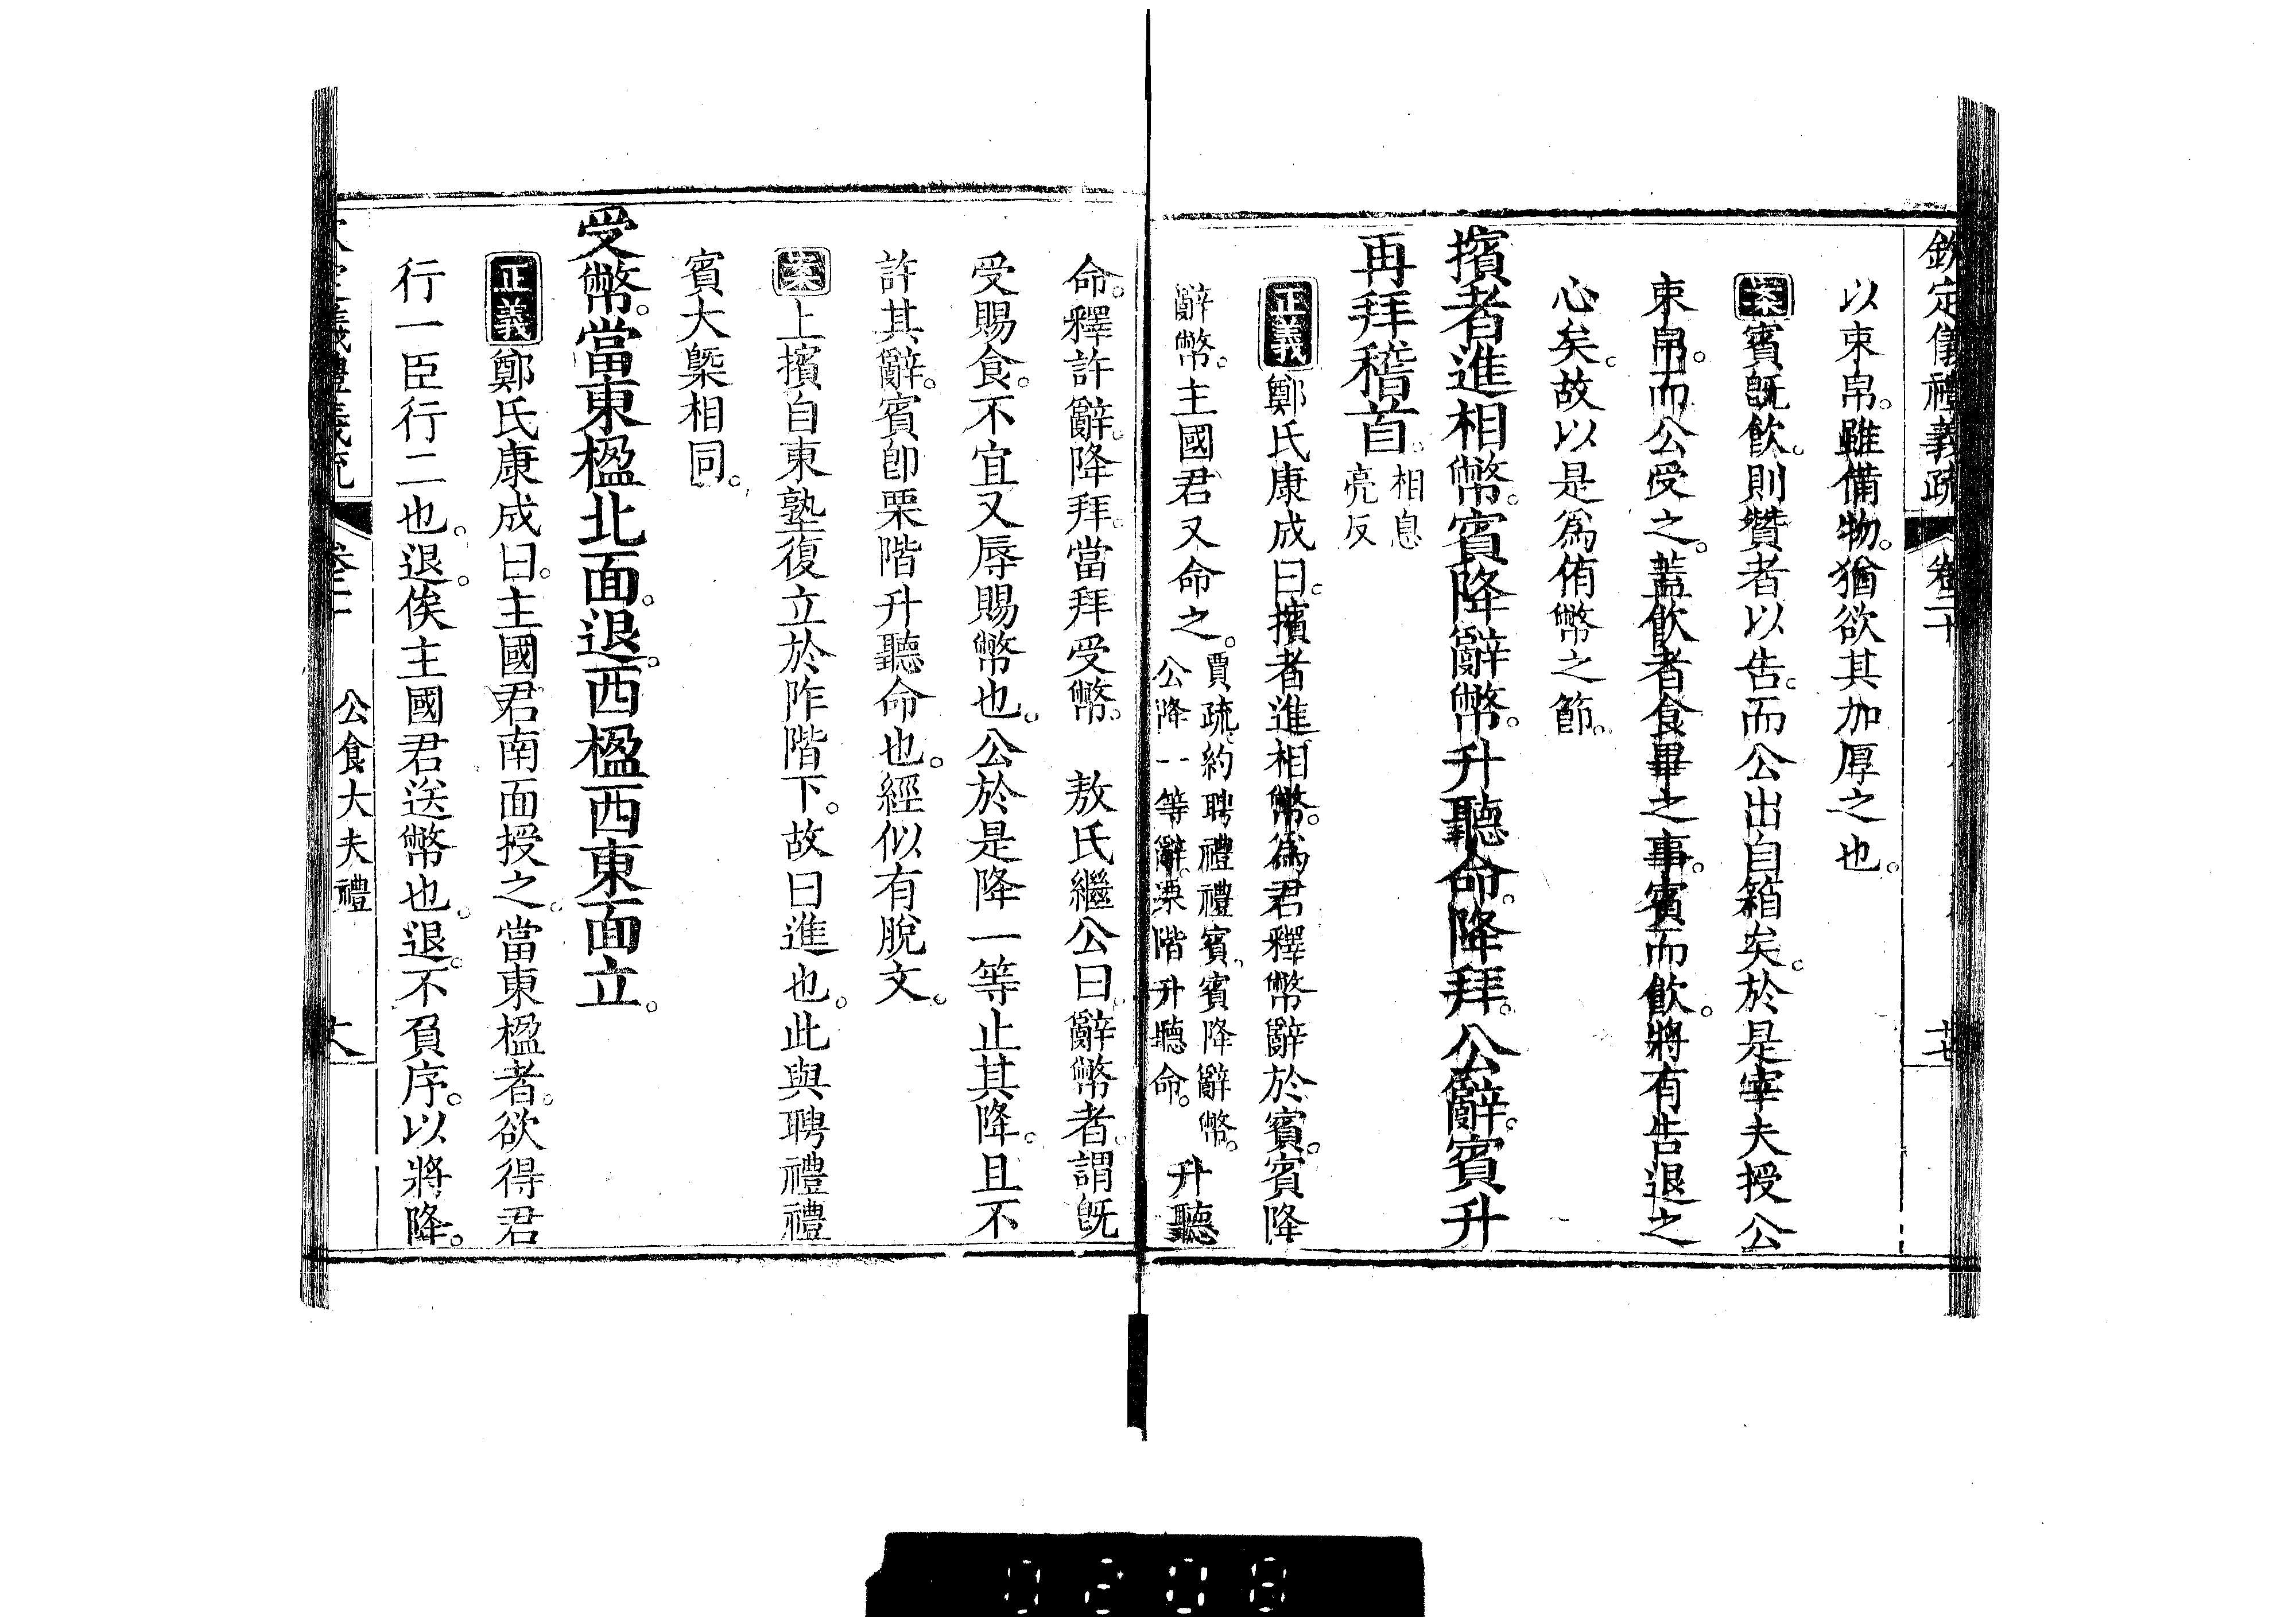 欽定儀禮義疏 卷二十 十七
以束帛。雖備物。猶欲其加厚之也。
案賓旣飮。則贊者以告。而公出自箱矣。於是宰夫授公
束帛。而公受之。蓋飮者食畢之事。賓而飮。將有告退之
心矣。故以是爲侑幣之節。
擯者進相幣。賓降辭幣。升聽命。降拜。公辭。賓升
再拜稽首。相息亮反
正義鄭氏康成曰。擯者進相幣。爲君釋幣辭於賓。賓降
辭幣。主國君又命之。賈疏。約聘禮禮賓。賓降辭幣。公降一等辭。栗階升聽命。升聽
命。釋許辭。降拜。當拜受幣。 敖氏繼公曰。辭幣者。謂旣
受賜食。不宜又辱賜幣也。公於是降一等止其降。且不
許其辭。賓卽栗階升聽命也。經似有脫文。
案上擯自東塾復立於阼階下。故曰進也。此與聘禮禮
賓大槩相同。
受幣。當東楹北面。退。西楹西東面立。
正義鄭氏康成曰。主國君南面授之。當東楹者。欲得君
行一臣行二也。退。俟主國君送幣也。退。不負序。以將降。
公食大夫禮